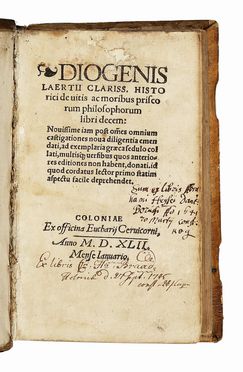 DIOGENIS
LAERTII CLARISS. HISTO
rici de uitis ac moribus prisco
rum philosophorum
libri decem:
Nouissime iam post oms omnium
castigationes noua diligentia emen
dati, ad exemplaria græca sedulo col
lati, multisq; uersibus quos anterio-
res editiones non habent, donati. id
quod cordatus lector primo statim
aspectu facile deprehendet.
COLONIAE
Ex officina Eucharij Ceruicorni,
Anno M. D. XLII.
Mense Ianuario,
Ex libris